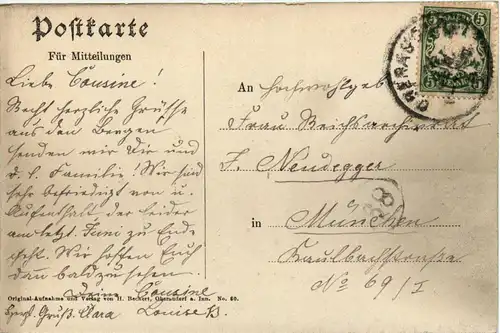 Postkarte
Für Mitteilungen
Liebe Cousine!
Recht herzliche Grüsse
aus den Bergen
senden wir Dir und
d. l. Familie! Wir sind
sehr befriedigt von u.
Aufenthalt der leider
am letzt. Juni zu Ende
geht. Wir hoffen Euch
dann bald zu sehen.
Deine Cousine
Louise B.
Herzl. Gruß Clara
An Hochwohlgeb
Frau Reichsarchivrat
F. Neudegger
in München
Kaulbachstraße
No 69/I
Original-Aufnahme und Verlag von H. Beckert, Oberaudorf a. Inn. No. 50.
5
5
38